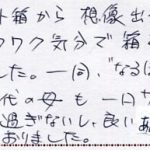 外箱から想像出
ワク気分で箱
した。一同、"なるほ
代の母も一口サ
過ぎないし、良い
おりました。